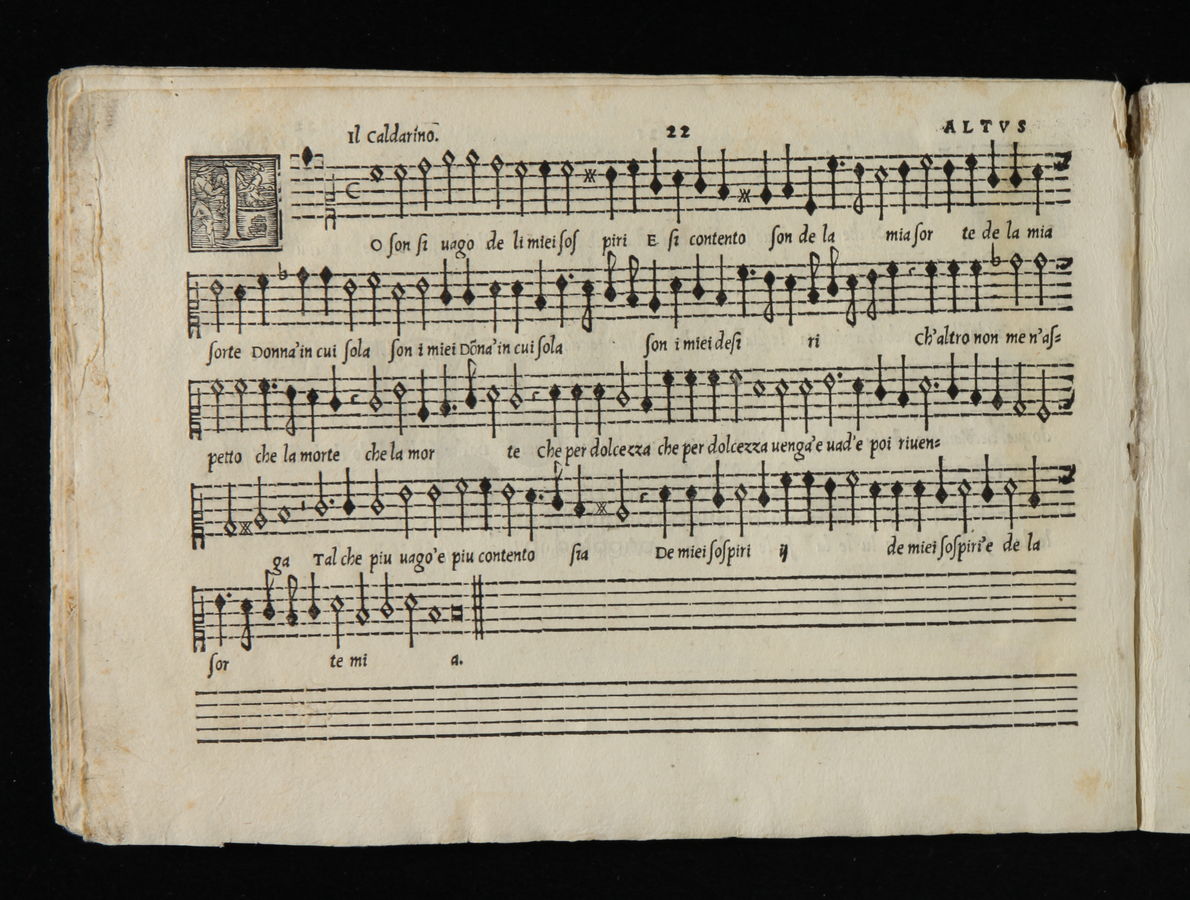 Il Caldarino. 22 ALTVS
IO ſon ſi uago de li miei ſoſ piri E ſi contento ſon de la mia ſor te de la mia
ſorte Donna'in cui ſola ſon i miei Dõna'in cui ſola ſon i miei deſi ri Ch'altro non me n'aſ=
petto che la morte che la mor te Che per dolcezza che per dolcezza uenga'e uad'e poi riuen=
ga Tal che piu uago'e piu contento ſia De miei ſoſpiri ij de miei ſoſpiri'e de la
ſor te mi a.